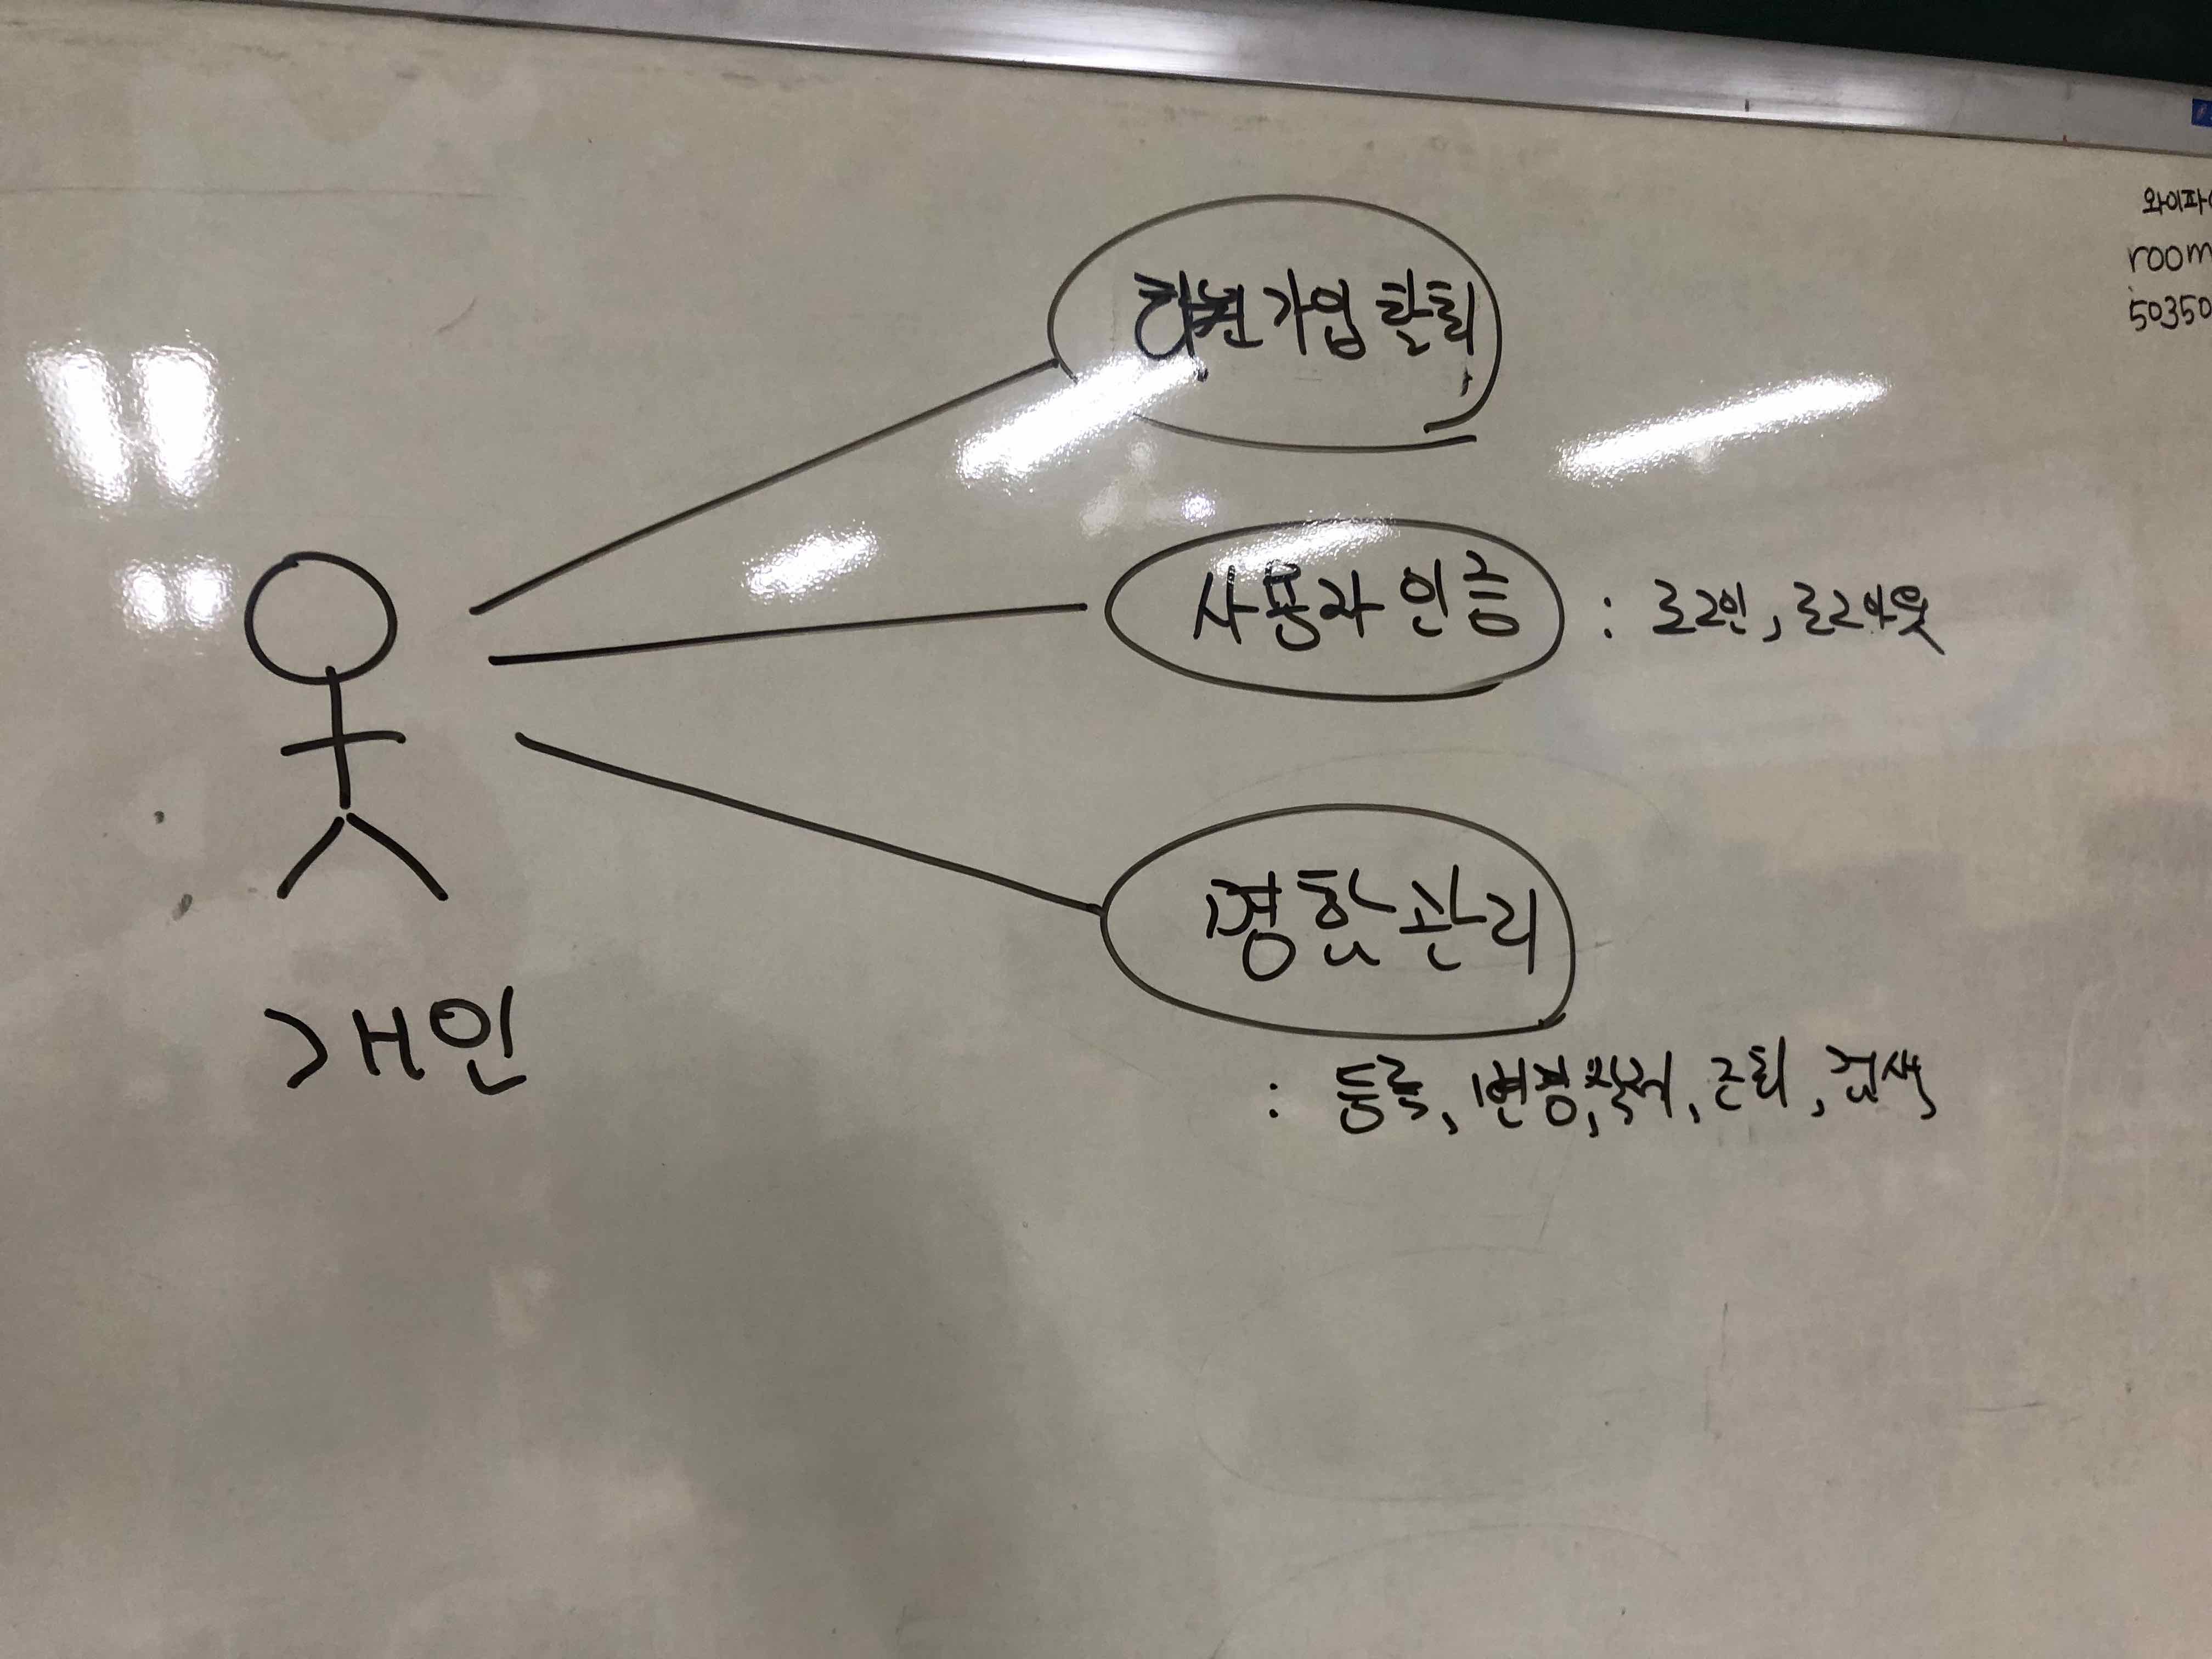 회원가입 탈퇴
사용자 인증 : 로그인, 로그아웃
명함 관리
: 등록, 변경, 삭제, 조회, 검색
개인
와이파이
room
50350